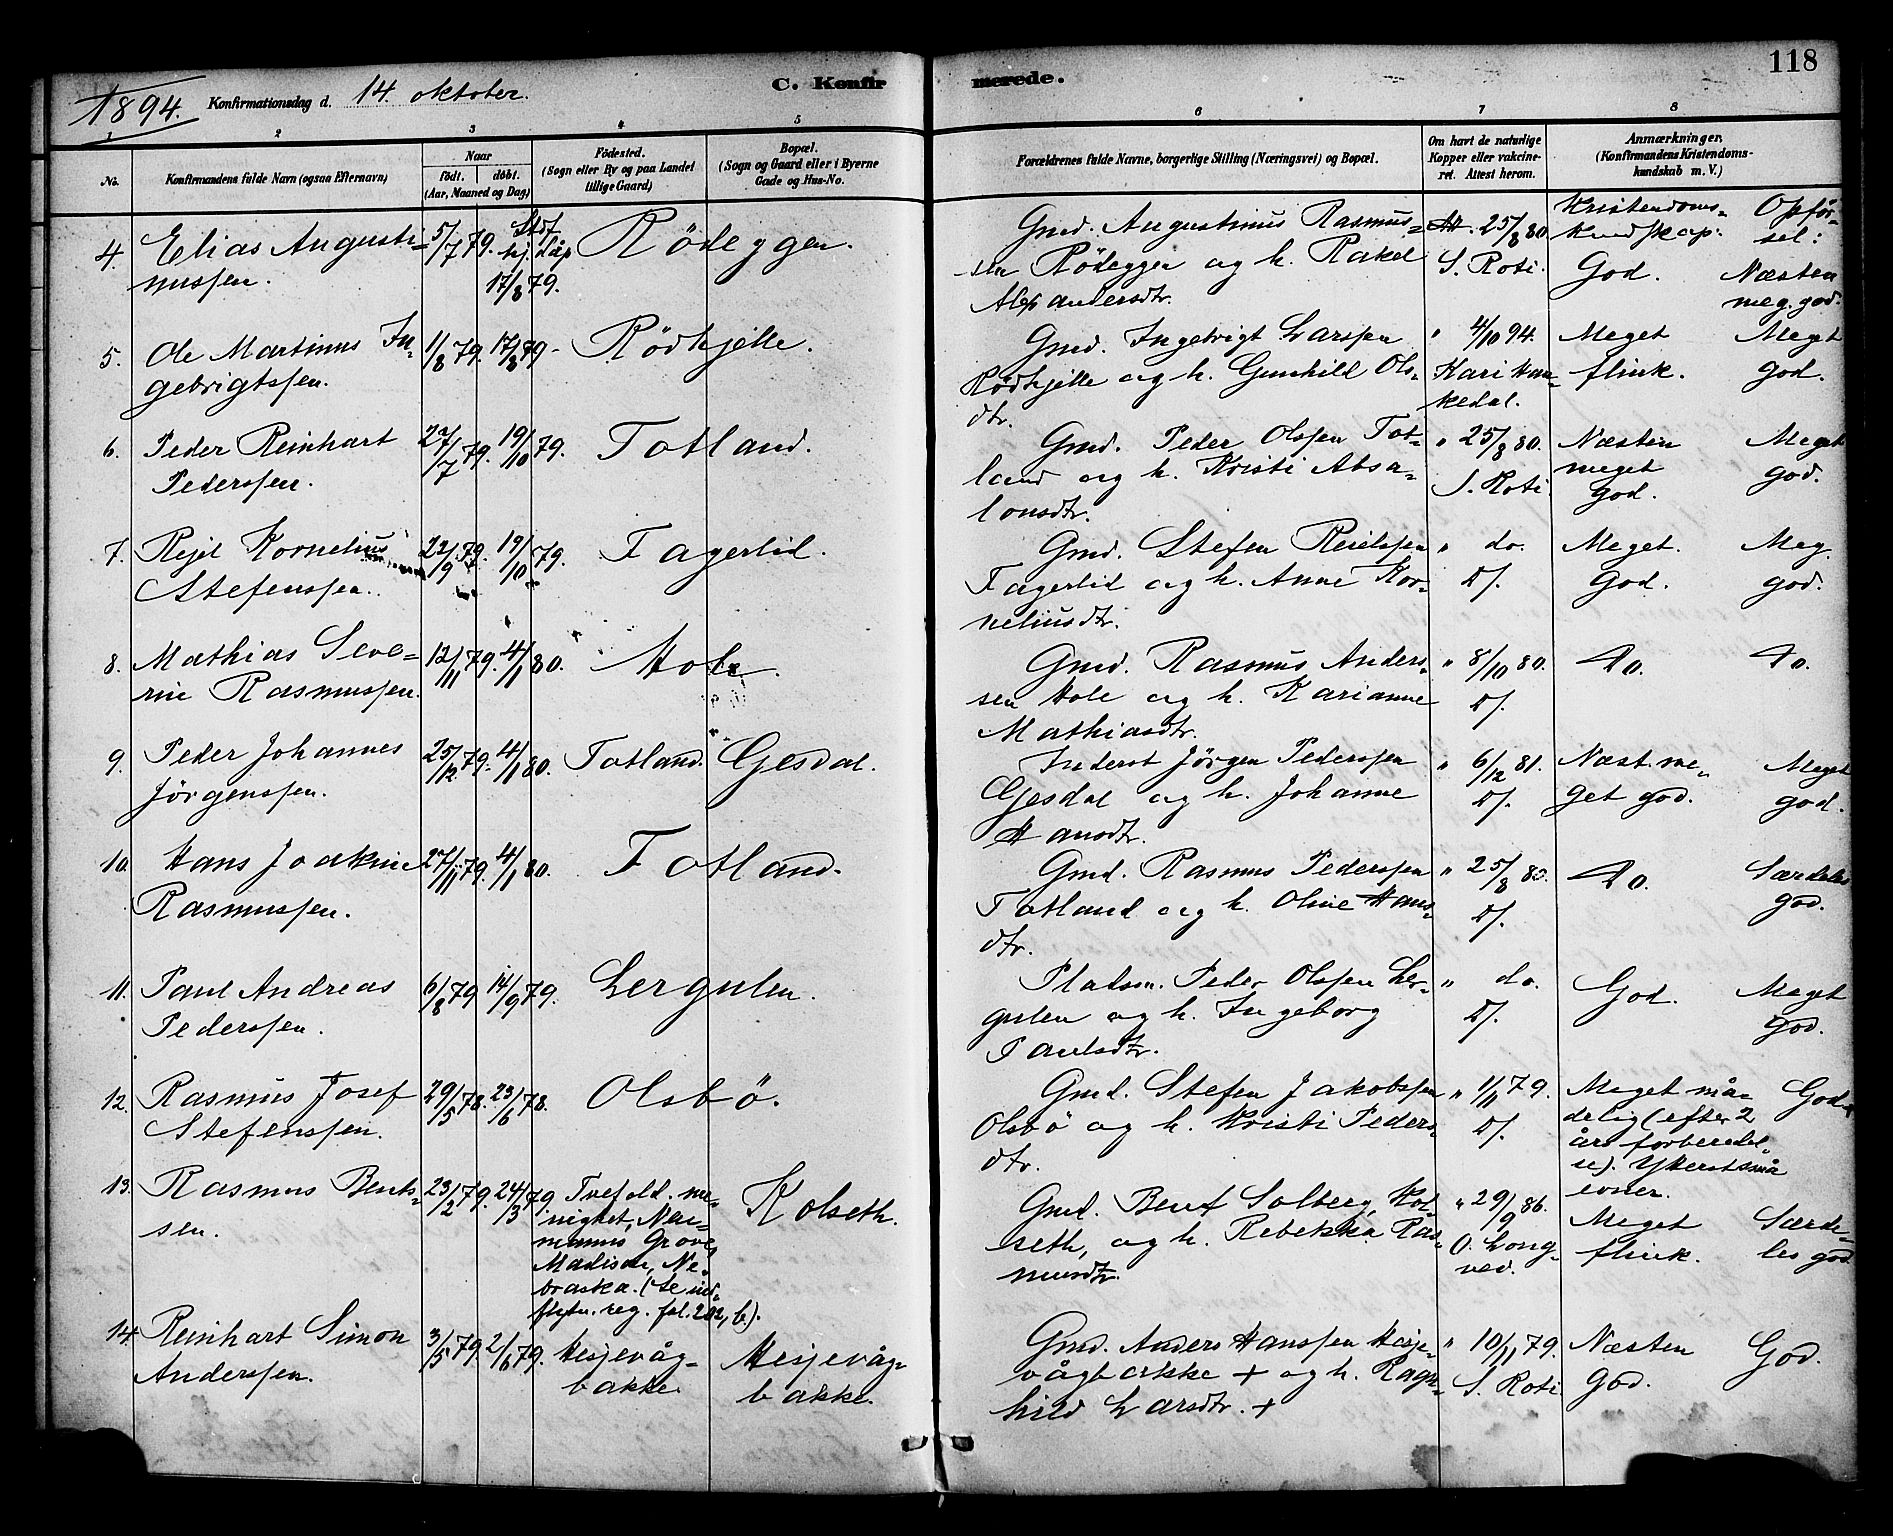 118
1894. Konfirmationsdag d. 14. oktober. C. Konfirmerede.
1 2 3 4 5 6 7 8
No.
Konfirmandens fulde Navn (ogsaa Efternavn)
Naar
født. døbt.
(Aar, Maaned og Dag)
Fødested.
(Sogn eller By og paa Landet
tillige Gaard)
Bopæl.
(Sogn og Gaard eller i Byerne
Gade og Hus-No.
Forældrenes fulde Navne, borgerlige Stilling (Næringsvei) og Bopæl.
Om havt de naturlige
Kopper eller vakcine-
ret. Attest herom.
Anmærkninger.
(Konfirmandens Kristendoms-
kundskab m. V.)
Kristendoms- Opfør-
kundskap: sel:
4. Elias Augusti-
nussen.
5/7 79. Stdf.
hj. dåp
17/8 79.
Rödeggen.
Gmd. Augustinus Rasmus-
sen Rödeggen og h. Rakel
Alexandersdtr.
At. 25/8 80
S. Roti.
God. Næsten
meg. god.
5. Ole Martinus In-
gebrigtssen.
1/8 79. 17/8 79
Rödhjelle.
Gmd. Ingebrigt Larssen
Rödhjelle og h. Gunhild Ols-
dtr.
" 4/10 94.
Kari Van-
kedal.
Meget
flink.
Meget
god.
6. Peder Reinhart
Pederssen.
27/7 79. 19/10 79.
Totland.
Gmd. Peder Olssen Tot-
land og h. Kristi Absa-
lonsdtr.
" 25/8 80.
S. Roti.
Næsten
meget
god.
Meget
god.
7. Rejel Kornelius
Stefenssen.
22/9 79. 19/10 79.
Fagerlid.
Gmd. Stefen Reielssen
Fagerlid og h. Anne Kor-
neliusdtr.
" do.
D/.
Meget.
God.
Meg.
god.
8. Mathias Seve-
rin Rasmussen.
12/11 79. 4/1 80.
Hole.
Gmd. Rasmus Anders-
sen Hole og h. Karianne
Mathiasdtr.
" 8/10 80.
D/.
Do. Do.
9. Peder Johannes
Jörgenssen.
25/12 79. 4/1 80.
Totland. Gesdal.
Inderst Jörgen Pederssen
Gesdal og h. Johanne
Hansdtr.
" 6/12 81.
D/.
Næst. me-
get god.
Meget
god.
10. Hans Joakim
Rasmussen.
27/11 79. 4/1 80.
Totland.
Gmd. Rasmus Pederssen
Totland og h. Oline Hans-
dtr.
" 25/8 80.
D/.
Do. Særdeles
god.
11. Paul Andreas
Pederssen.
6/8 79 14/9 79.
Lergulen.
Pladsm. Peder Olssen Ler-
gulen og h. Ingeborg
Paulsdtr.
" do.
D/.
God. Meget
god.
12. Rasmus Josef
Stefenssen.
29/5 78. 23/6 78.
Olsbö.
Gmd. Stefen Jakobssen
Olsbö og h. Kristi Peders-
dtr.
" 1/11 79.
D/.
Meget må-
delig (efter 2
års forberedel-
se). Yderst små
evner.
God.
13. Rasmus Bents-
sen.
23/2 79. 24/3 79.
Trefold. me-
nighet, Nor-
manns Grove,
Madison, Ne-
braska. (Se ind-
flytn. reg. fol. 202, b.).
Kolseth.
Gmd. Bent Solberg, Kol-
seth, og h. Rebekka Ras-
musdtr.
" 29/9 86.
O. Long-
ved.
Meget
flink.
Særde-
les god
14. Reinhart Simon
Anderssen.
3/5 79. 2/6 79.
Hesjevåg-
bakke.
Hesjevåg-
bakke.
Gmd. Anders Hanssen Hesje-
vågbakke + og h. Ragn-
hild Larsdtr. +
" 10/11 79.
S. Roti
Næsten
god.
God.